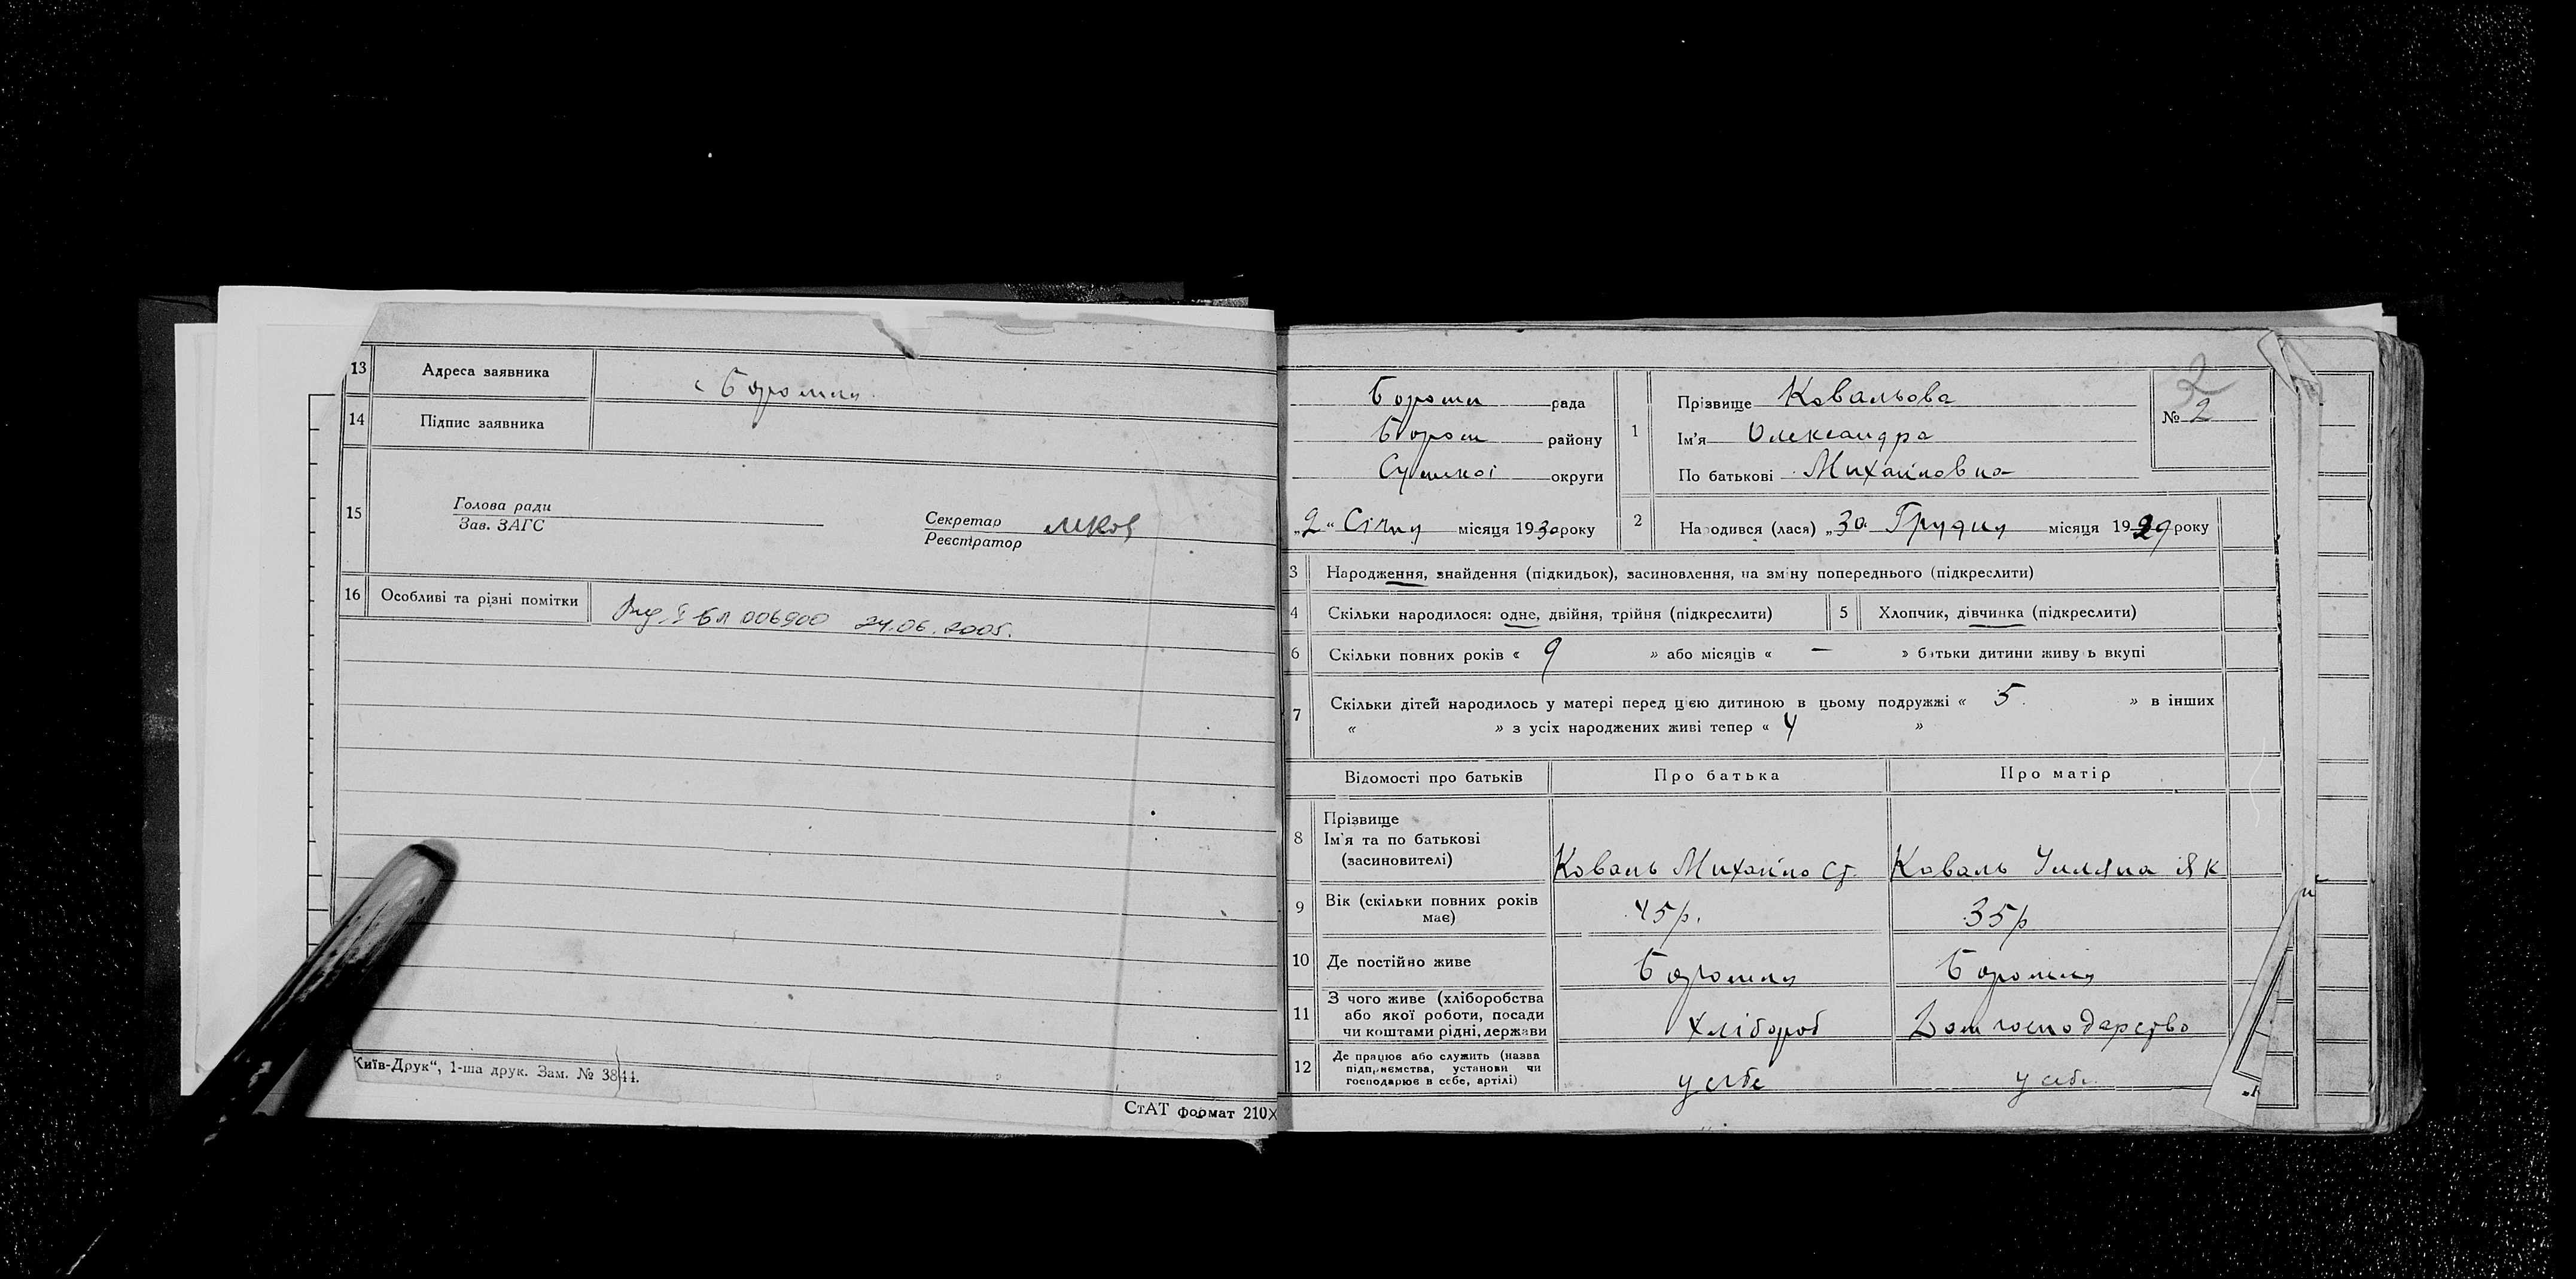 13 Адреса заявника с Боромля
14 Підпис заявника
15 Голова ради
Зав. ЗАГС
Секретар
Реєстратор
16 Особливі та різні помітки
І БЛ 006900 24.06.2005.
Київ-Друк“, 1-ша друк. Зам. № 3844.
СтАТ формат 210X
2
Боромл рада
Бором району
Сумської округи
„2“ Січня місяця 1930 року
1 Прізвище Ковальова
Ім'я Олександра
По батькові Михайловна
№ 2
2 Народився (лася) „30 Грудня місяця 1929 року
3 Народження, знайдення (підкидьок), засиновлення, на зміну попереднього (підкреслити)
4 Скільки народилося: одне, двійня, трійня (підкреслити) 5 Хлопчик, дівчинка (підкреслити)
6 Скільки повних років « 9 » або місяців « — » батьки дитини живуть вкупі
7 Скільки дітей народилось у матері перед цією дитиною в цьому подружжі « 5. » в інших
« » з усіх народжених живі тепер « 4 »
Відомості про батьків Про батька Про матір
8 Прізвище
Ім'я та по батькові
(засиновителі)
Коваль Михайло Ст. Коваль Уляна Як
9 Вік (скільки повних років
має)
45 р. 35 р
10 Де постійно живе Боромля Боромля
11 З чого живе (хліборобства
або якої роботи, посади
чи коштами рідні, держави
хлібороб Дом господарство
12 Де працює або служить (назва
підприємства, установи чи
господарює в себе, артілі)
у себе у себе